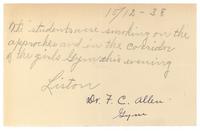 10/12 - 38
students were smoking on the
approches and in the corridor
of the girls Gym this evening
Liston
Dr. F. C. Allen
Gym